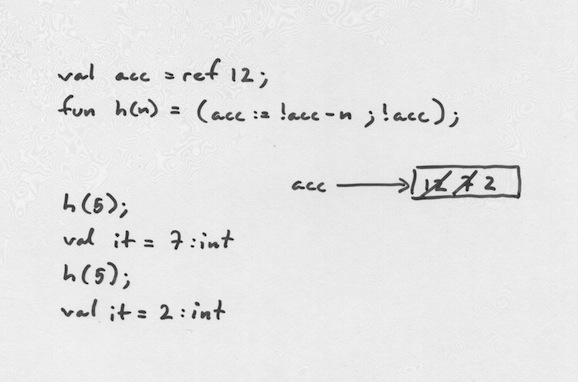 val acc = ref 12;
fun h(n) = (acc := !acc-n ; !acc);
acc → 12 7 2
h(5);
val it = 7 : int
h(5);
val it = 2 : int